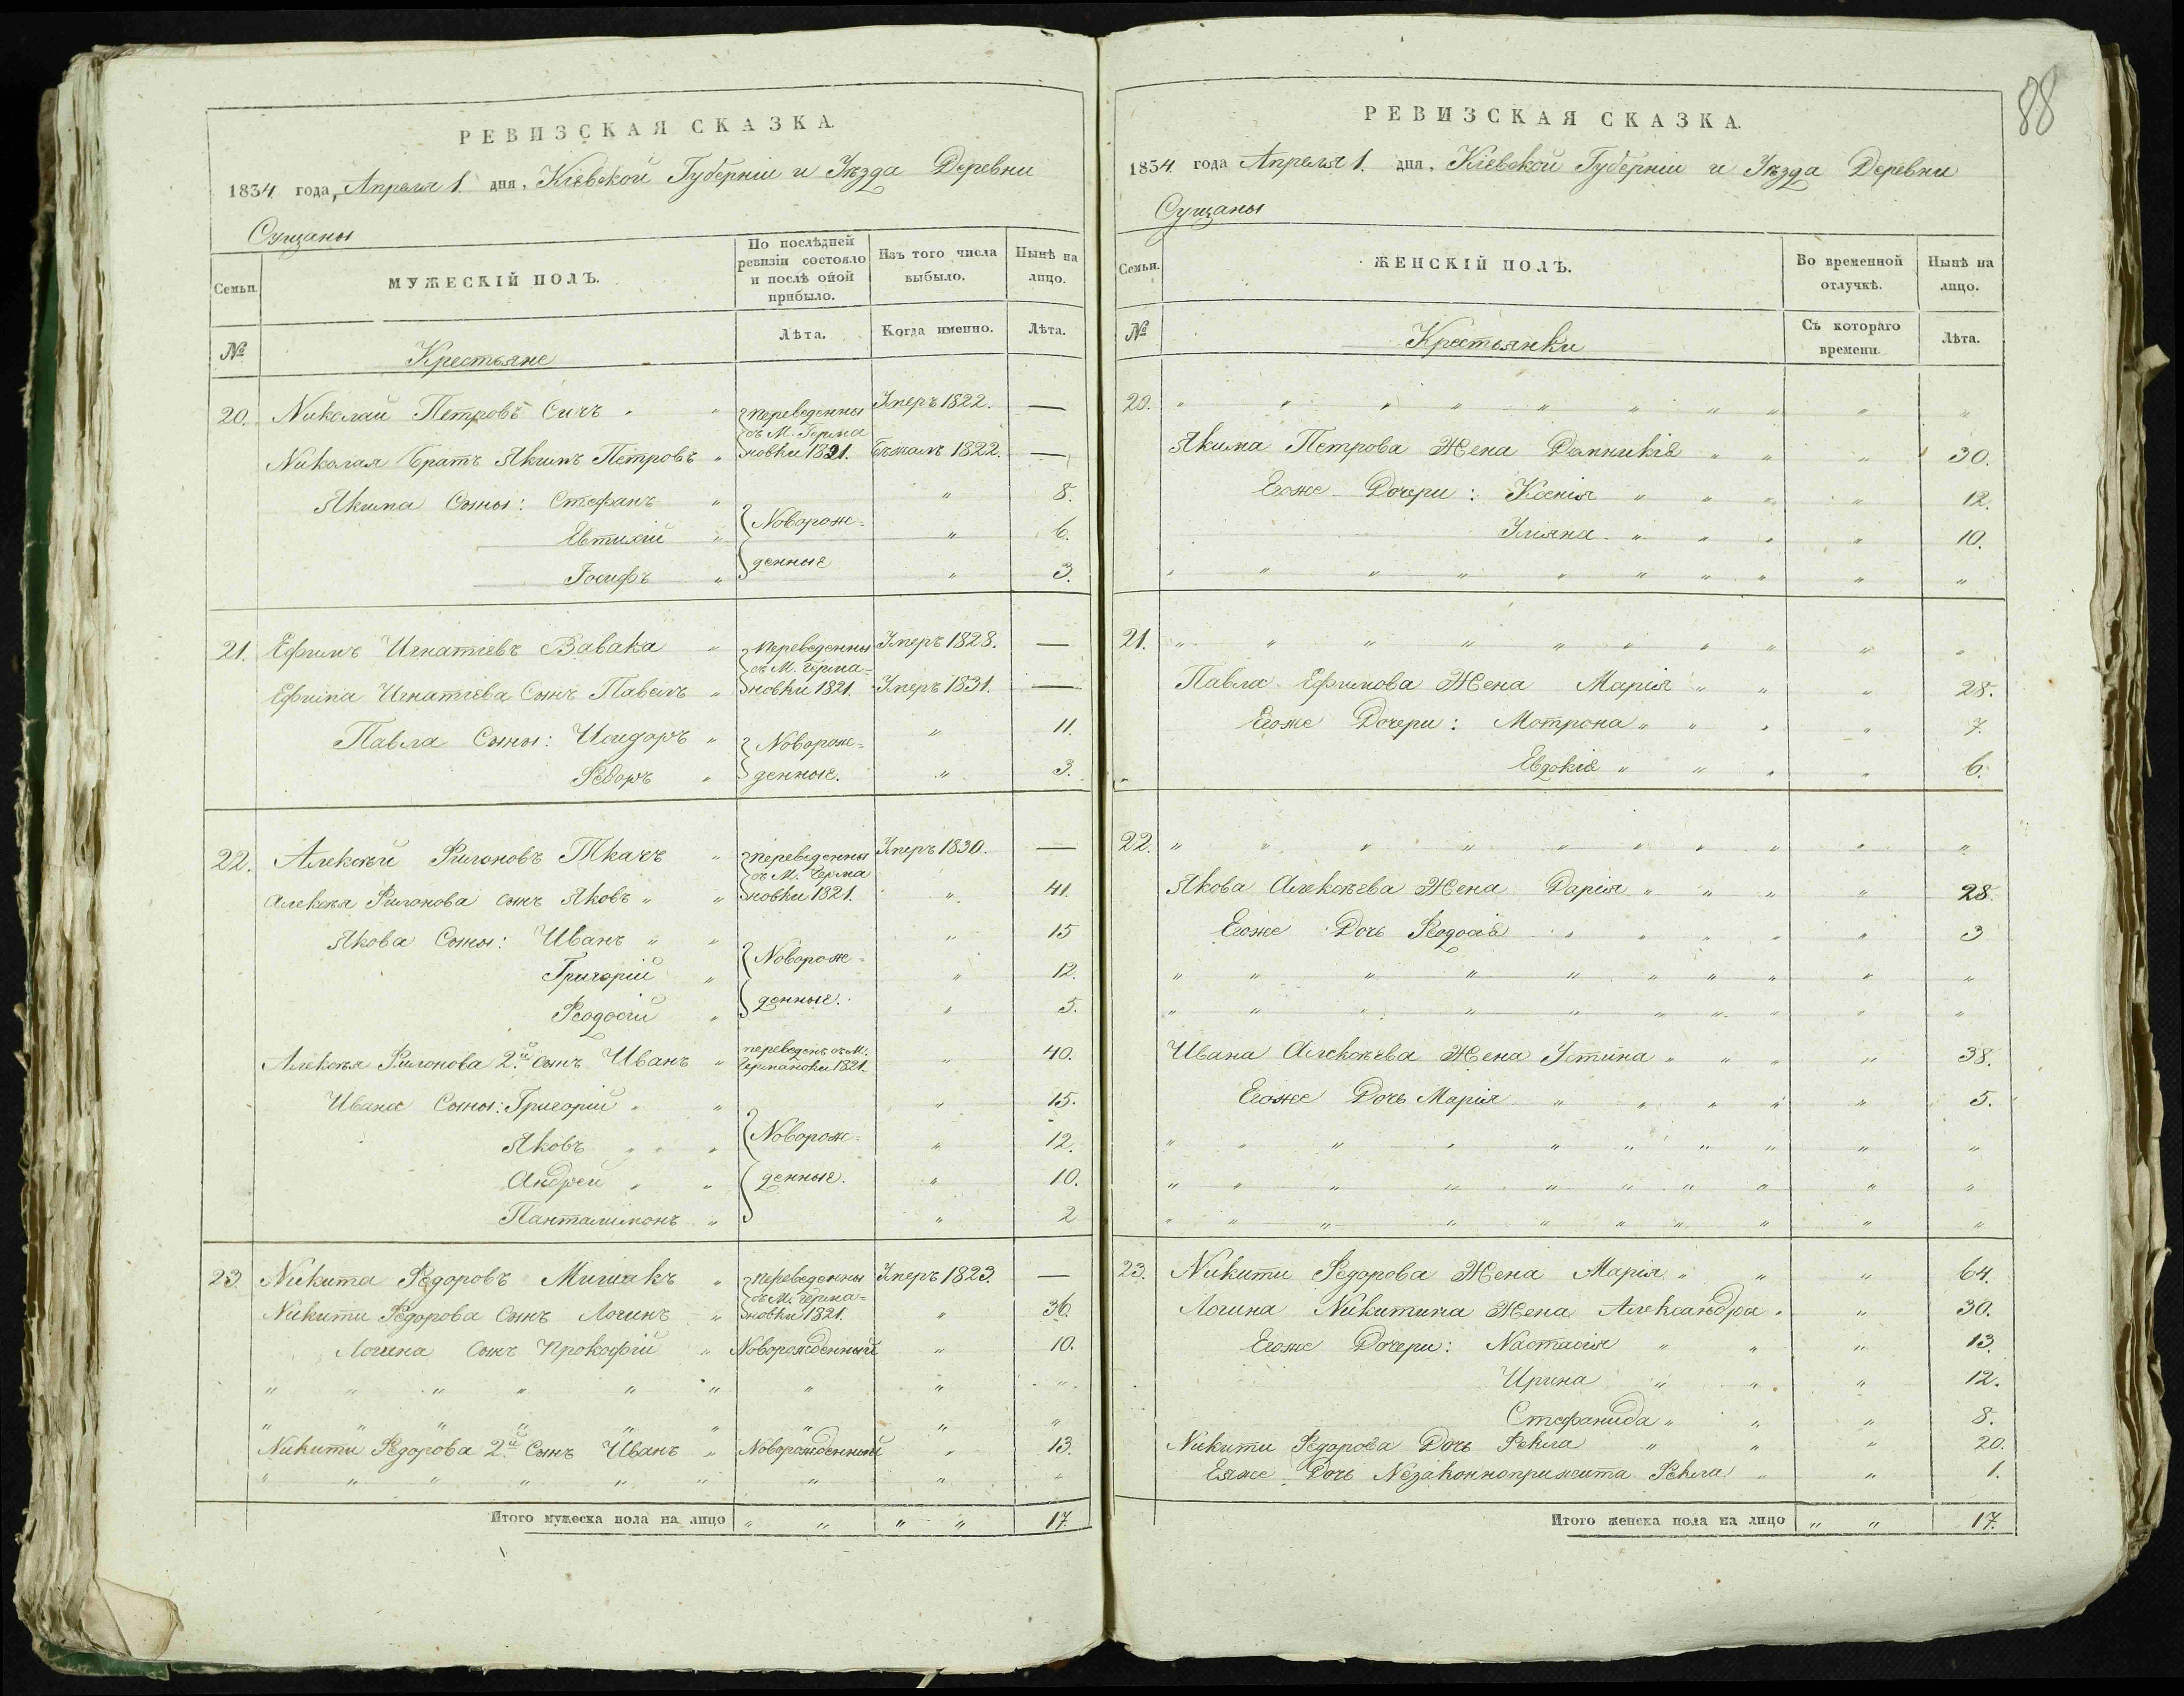 РЕВИЗСКАЯ СКАЗКА.
1834 года, Апреля 1. дня, Кіевской Губерніи и Уѣзда Деревни
Сущаны
Семьи.
МУЖЕСКІЙ ПОЛЪ.
По послѣдней ревизіи состояло и послѣ оной прибыло.
Изъ того числа выбыло.
Нынѣ на лицо.
№
Крестьяне
Лѣта.
Когда именно.
Лѣта.
20. Николай Петровъ Сичъ " " переведенны Умеръ 1822. —
съ М. Герма
Николая братъ Якимъ Петровъ " новки 1821. бѣжалъ 1822. —
Якима Сыны: Стефанъ " " 8.
Евтихій " Новорож= " 6.
Іосифъ " денные " 3.
21. Ефимъ Игнатіевъ Вавака " переведенны Умеръ 1828. —
съ М. Герма=
Ефима Игнатіева Сынъ Павелъ " новки 1821. Умеръ 1831. —
Павла Сыны: Исидоръ " Новорож= " 11.
Ѳедоръ " денные. " 3.
22. Алексѣй Филоновъ Ткачъ " переведенны Умеръ 1830. —
съ М. Герма
Алексѣя Филонова сынъ Яковъ " " новки 1821. " 41.
Якова Сыны: Иванъ " " " 15
Григорій " Новорож= " 12.
Ѳеодосій " денные. " 5.
Алексѣя Филонова 2й сынъ Иванъ " переведенъ съ М: " 40.
Германовки 1821.
Ивана Сыны: Григорій " " " 15.
Яковъ " " " Новорож= " 12.
Андрей " " денные. " 10.
Панталимонъ " " 2
23 Никита Ѳедоровъ Мишакъ " переведенны Умеръ 1823. —
съ М. Герма=
Никиты Ѳедорова Сынъ Логинъ " новки 1821. " 36.
Логина Сынъ Прокофій " Новорожденный " 10.
" " " " " " " " "
" " " " " " " " "
Никиты Ѳедорова 2й Сынъ Иванъ " Новорожденный " 13.
" " " " " " " " "
Итого мужеска пола на лицо " " " " 17
88
РЕВИЗСКАЯ СКАЗКА.
1834 года Апреля 1. дня, Кіевской Губерніи и Уѣзда Деревни
Сущаны
Семьи.
ЖЕНСКІЙ ПОЛЪ.
Во временной отлучкѣ.
Нынѣ на лицо.
№
Крестьянки
Съ котораго времени.
Лѣта.
20. " " " " " " " " " "
Якима Петрова Жена Домникія " " " 30.
Егоже Дочери: Ксенія " " " " 12.
Уляна " " " " 10.
" " " " " " " " " "
21. " " " " " " " " " "
Павла Ефимова Жена Марія " " " 28.
Егоже Дочери: Мотрона " " " " 7.
Евдокія " " " " 6.
22. " " " " " " " " " "
Якова Алексѣева Жена Дарія " " " " 28.
Егоже Дочь Ѳеодосія " " " " " 3
" " " " " " " " " "
" " " " " " " " " "
Ивана Алексѣева Жена Устина " " " " 38.
Егоже Дочь Марія " " " " " 5.
" " " " " " " " " "
" " " " " " " " " "
" " " " " " " " " "
23. Никиты Ѳедорова Жена Марія " " " 64.
Логина Никитина Жена Александра " " 30.
Егоже Дочери: Настасія " " " 13.
Ирина " " " 12.
Стефанида " " " 8.
Никиты Ѳедорова Дочь Ѳекла " " " 20.
Еяже Дочь Незаконноприжита Ѳекла " " 1.
Итого женска пола на лицо " " 17.